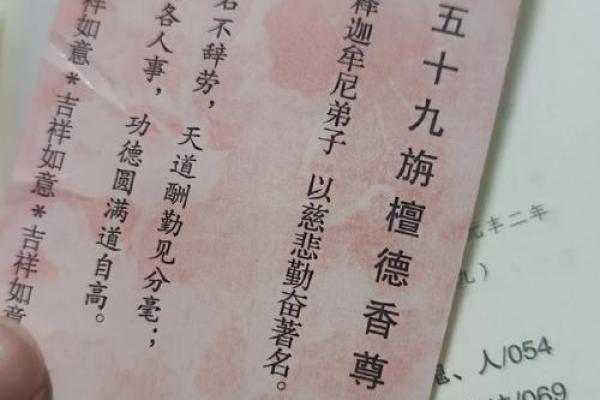 五十九旃檀德香尊
释迦牟尼弟子 以慈悲勤奋著名。
不辞劳， 天道酬勤见分毫；
各人事， 功德圆满道自高。
祥如意*吉祥如意*吉祥如意
元丰二年
）
、人/054
/069